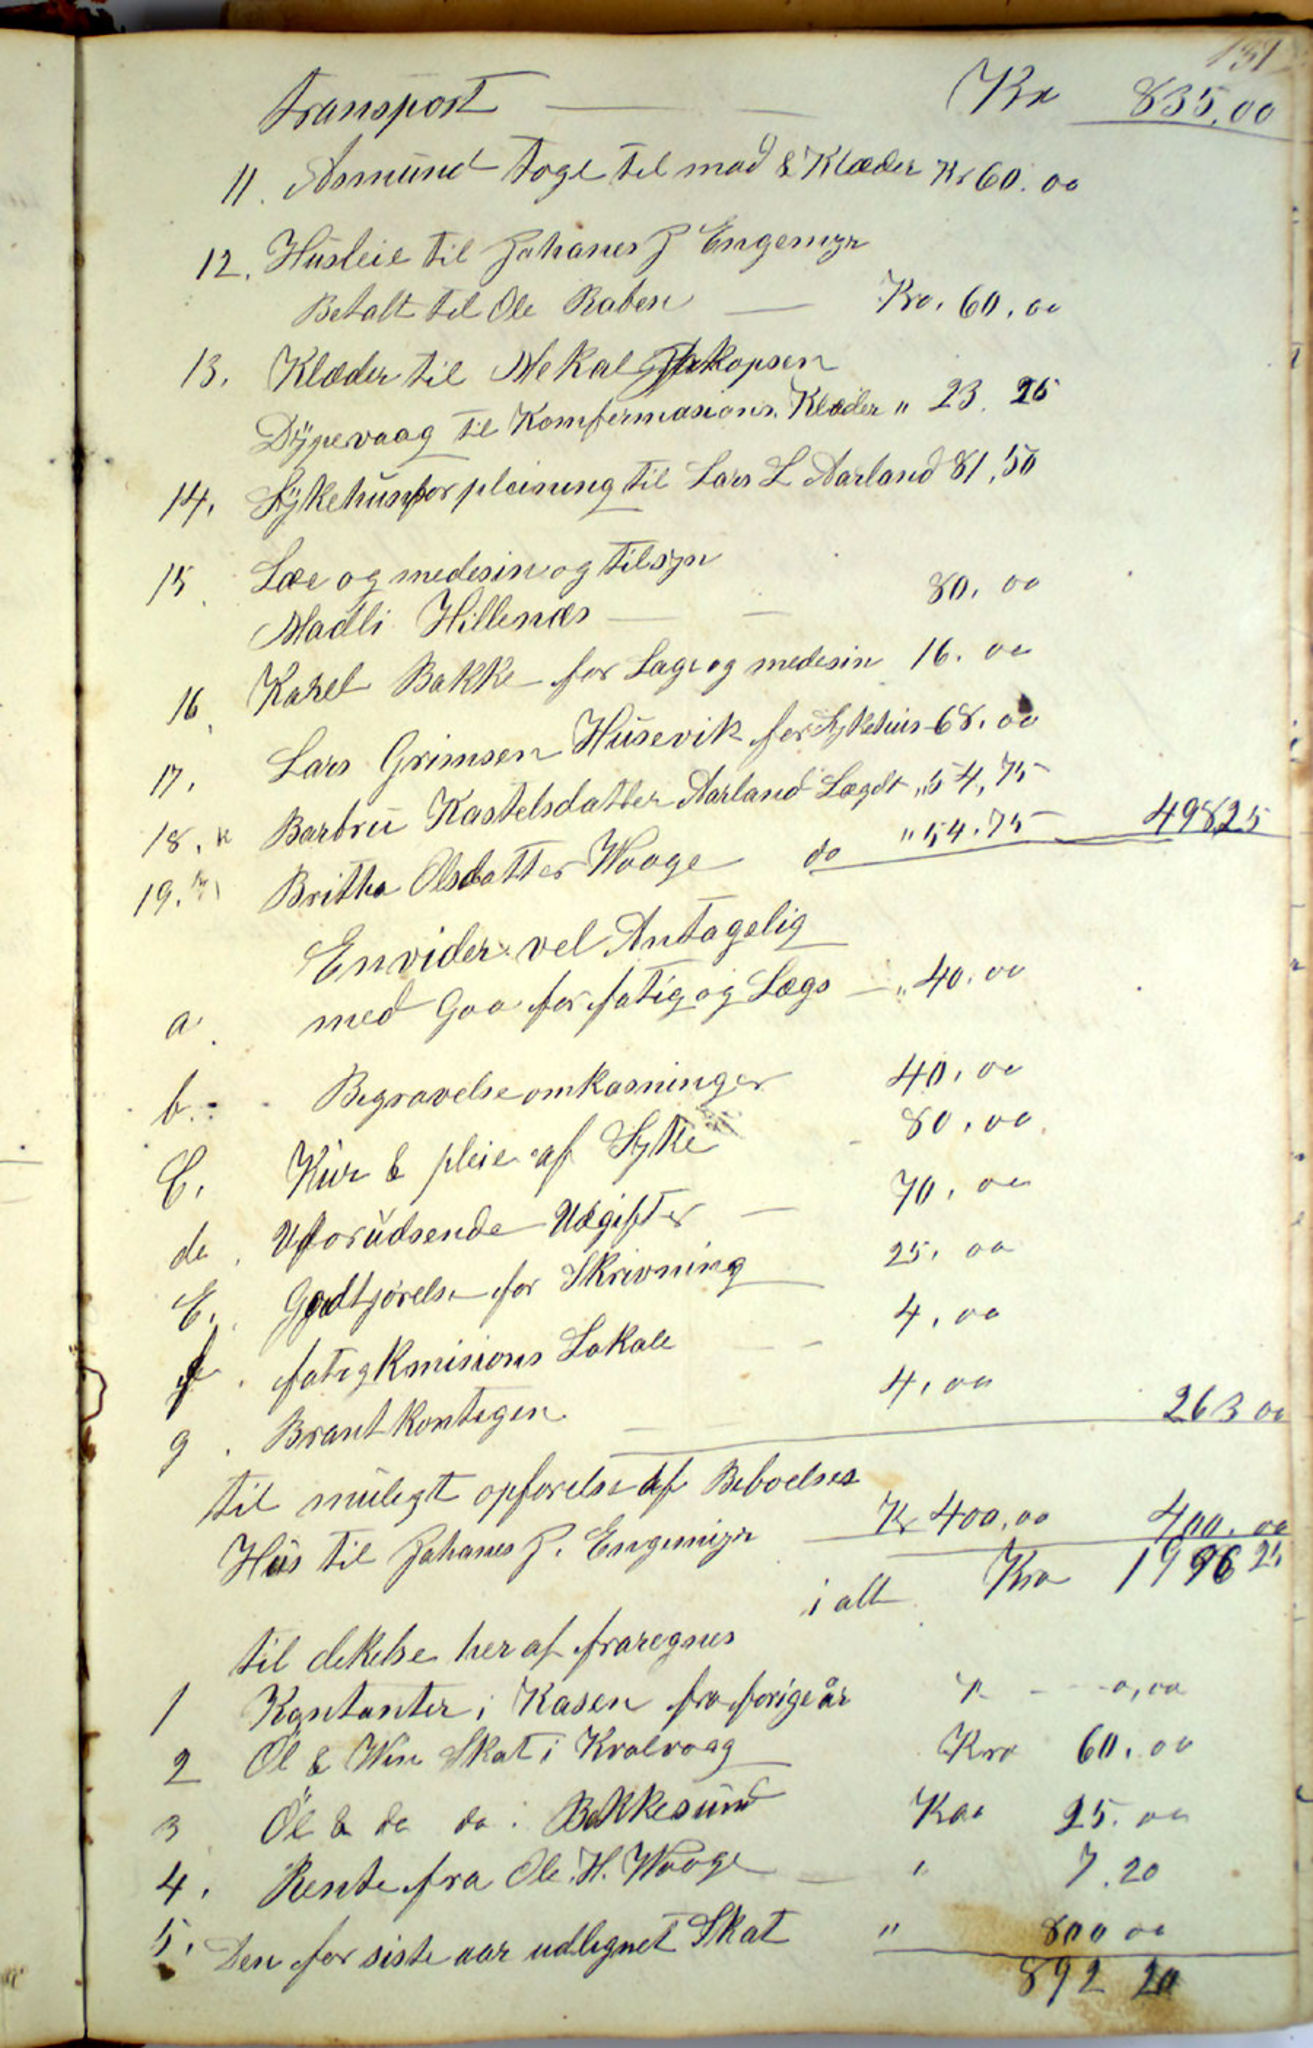 131
Transport Kr 835,00
11. Asmund Toge til mad & Klæder Kr 60.00
12. Husleie til Johanes J Engemyr
Betalt til Ole Raben Kro. 60.00
13. Klæder til Mekal Jakopsen
Dÿpevaag til Komfermasions Klæder " 23.25
14. Sÿkehusforpleining til Lars L Aarland 81,50
15. Læe og medesin og tilsyn
Madli Hillenæs 80.00
16. Karel Bakke for Lage og medesin 16.00
17. Lars Grimsen Husevik for Sykehus 68.00
18. Barbru Kastelsdatter Aarland Lægdt " 54,75
19. Britha Olsdatter Waage do " 54.75 49825
Envider vel Antagelig
a. med Gaa for fatig og Lægs " 40.00
b. Begravelseomkasninger 40.00
C. Kur & pleie af Syke 80.00
de. Uforudsende Udgifter 70.00
E. Godtjørelse for Skrivning 25.00
f. fatigkmisions Lokale 4.00
g. Brantkontigen 4.00 263 00
til muligt opførelse af Beboelses
Hus til Johanes J. Engemyr Kr 400,00 400.00
i alt Kro 1996 25
til dekelse her af fraregnes
1 Kontanter i Kasen fra forige år K - - 0,00
2 Öl & Win Skat i Kvalvaag Kro 60.00
3 Öl & do do i Bakkesund Kro 25.00
4. Rente fra Ole. H. Waage " 7.20
5. Den for siste aar udlignet Skat " 800 00
892 20